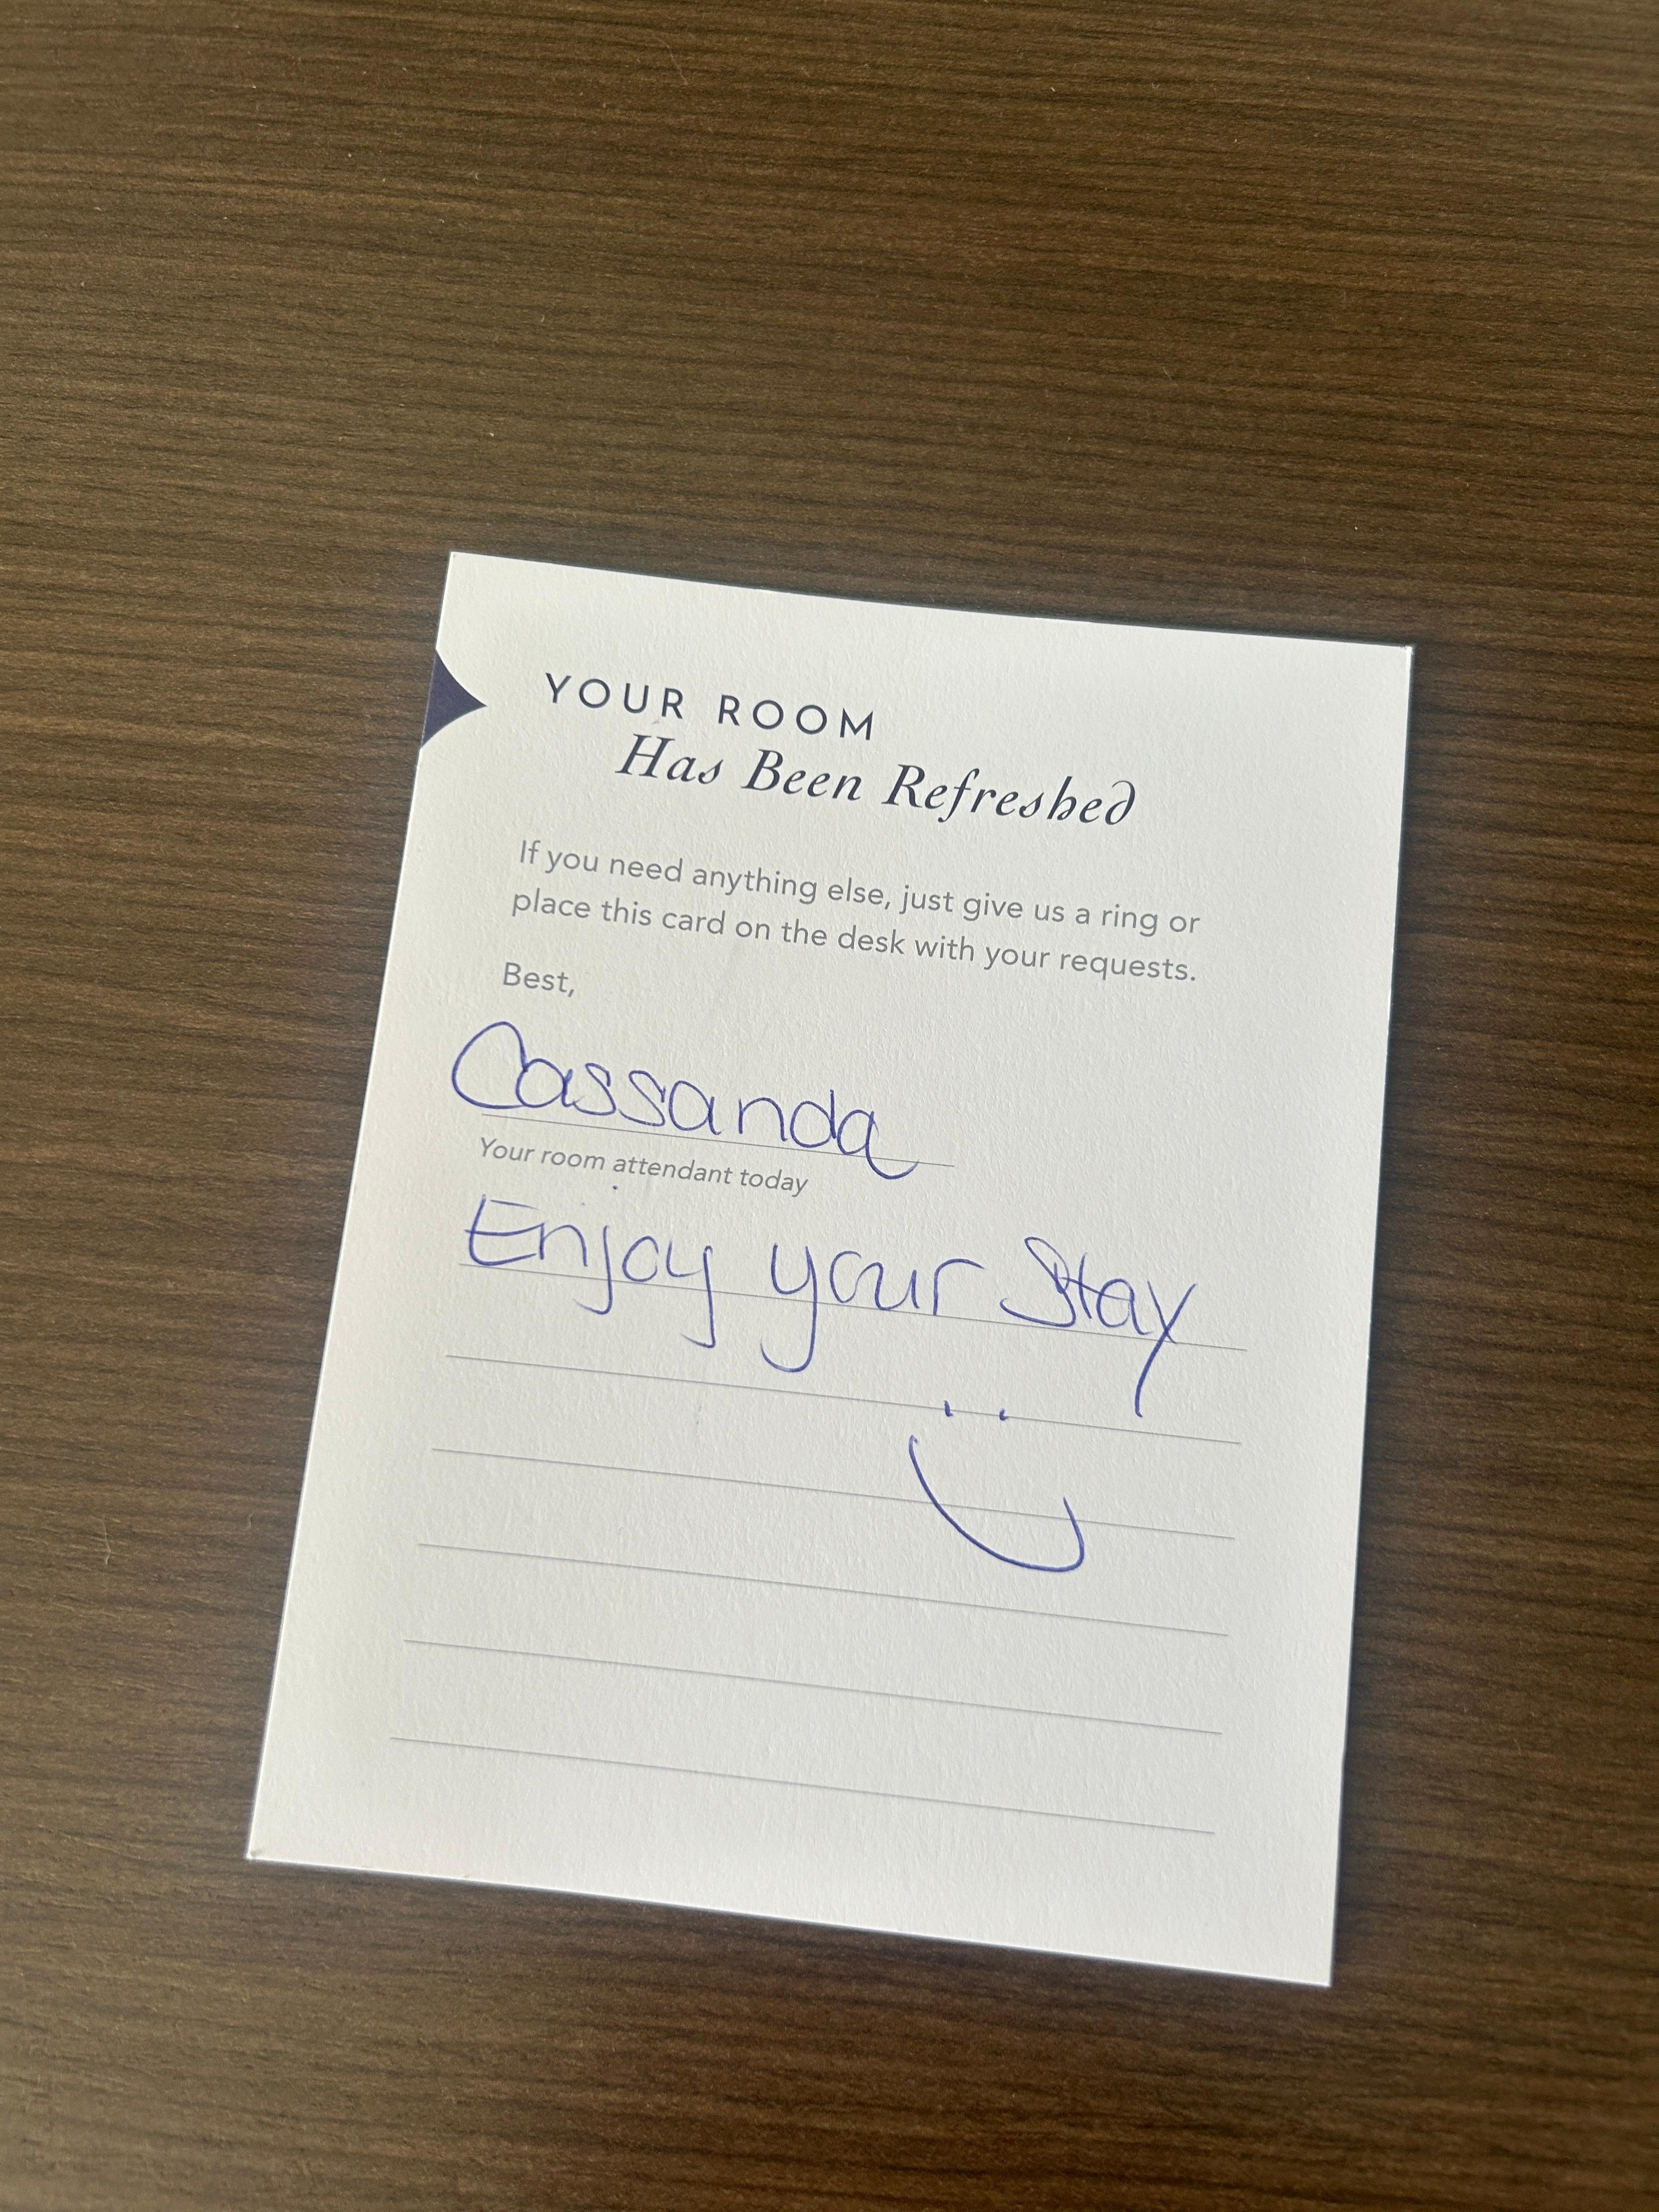 YOUR ROOM
Has Been Refreshed
If you need anything else, just give us a ring or
place this card on the desk with your requests.
Best,
Cassanda
Your room attendant today
Enjoy your Stay